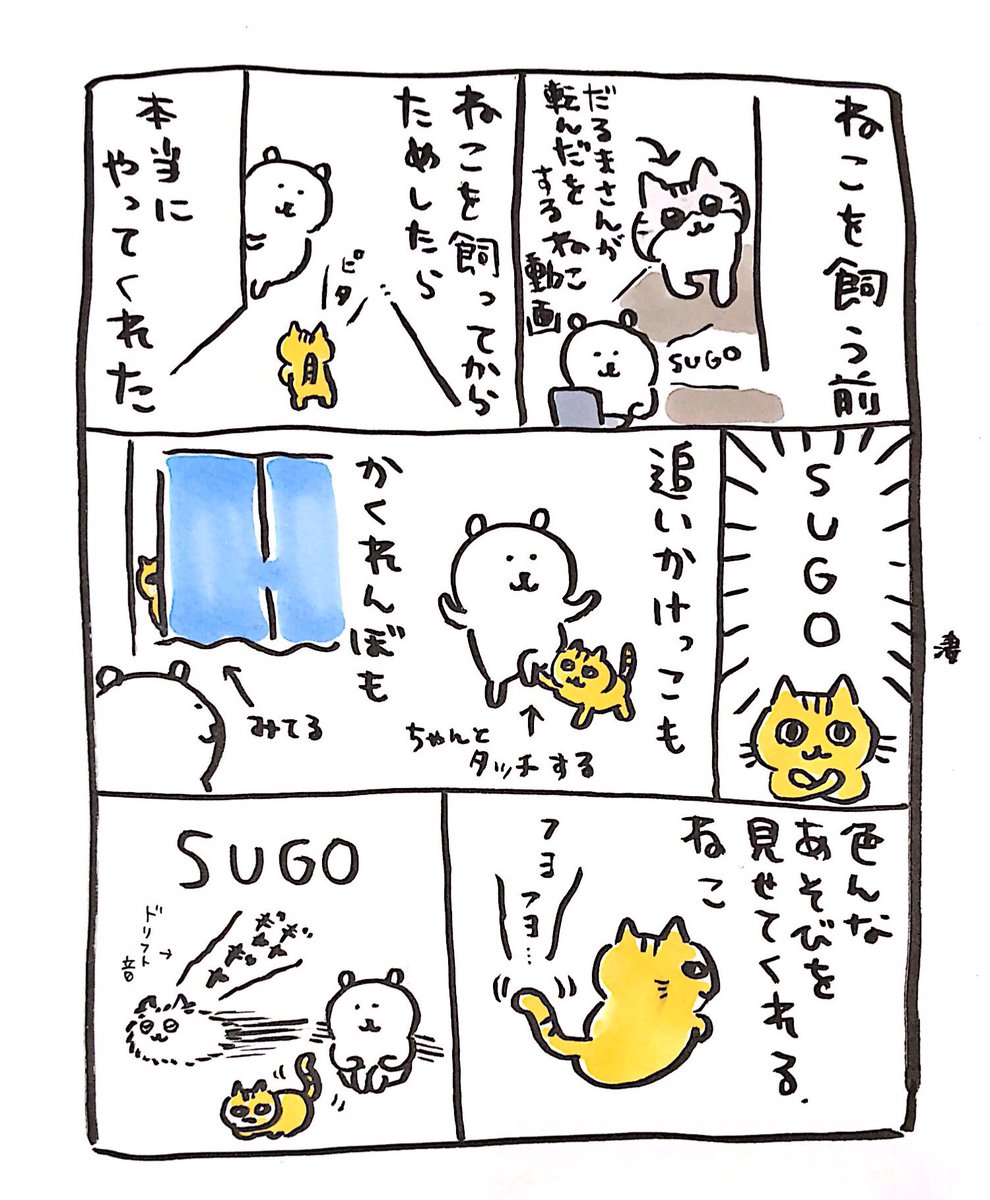 ねこを飼う前
だるまさんが
転んだを
するねこ
動画
SUGO
ねこを飼ってから
ためしたら
ピタ
本当に
やってくれた
SUGO
追いかけっこも
ちゃんと
タッチする
かくれんぼも
みてる
色んな
あそびを
見せてくれる
ねこ
フヨ
フヨ…
SUGO
ドリフト
音